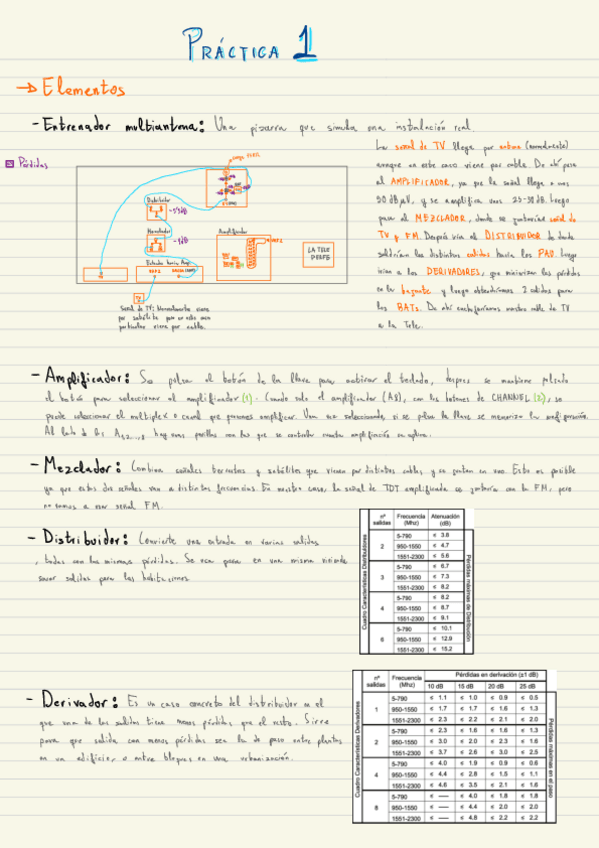 PRÁCTICA 1
→ Elementos
- Entrenador multiantena: Una pizarra que simula una instalación real.
Pérdidas
Distribuidor
Mezclador
Amplificador
LA TELE
Señal de TV: Normalmente viene
por satélite pero en este caso
particular viene por cable.
La señal de TV llega por antena (normalmente)
aunque en este caso viene por cable. De ahí pasa
al AMPLIFICADOR, ya que la señal llega a unos
50 dBµV, y se amplifica unos 25-30 dB. Luego
pasa al MEZCLADOR, donde se juntarían señal de
TV y FM. Después iría al DISTRIBUIDOR de donde
saldrían las distintas salidas hacia los PAU. Luego
irían a los DERIVADORES, que minimizan las pérdidas
en la bajante y luego obtendríamos 2 salidas para
los BATs. De ahí enchufaríamos nuestro cable de TV
a la Tele.
- Amplificador: Se pulsa el botón de la llave para activar el teclado, después se mantiene pulsado
el botón para seleccionar el amplificador (1). Cuando sale el amplificador (A8), con los botones de CHANNEL (2), se
puede seleccionar el multiplex o canal que queramos amplificar. Una vez seleccionado, si se pulsa la llave se memoriza la configuración.
Al lado de los A1,2,...,8 hay unas ruedillas con las que se controla cuanta amplificación se aplica.
- Mezclador: Combina señales terrestres y satélites que vienen por distintos cables y se juntan en uno. Esto es posible
ya que estas dos señales van a distintas frecuencias. En nuestro caso, la señal de TDT amplificada se juntaría con la FM, pero
no vamos a usar señal FM.
- Distribuidor: Convierte una entrada en varias salidas
, todas con las mismas pérdidas. Se usa para en una misma vivienda
sacar salidas para las habitaciones.
Cuadro Características Distribuidores
nº salidas Frecuencia (Mhz) Atenuación (dB)
2 5-790 ≤ 3.8
950-1550 ≤ 4.7
1551-2300 ≤ 5.6
3 5-790 ≤ 6.7
950-1550 ≤ 7.3
1551-2300 ≤ 8.2
4 5-790 ≤ 8.2
950-1550 ≤ 8.7
1551-2300 ≤ 9.1
6 5-790 ≤ 10.1
950-1550 ≤ 12.9
1551-2300 ≤ 15.2
Pérdidas máximas de Distribución
- Derivador: Es un caso concreto del distribuidor en el
que una de las salidas tiene menos pérdidas que el resto. Sirve
para que salida con menos pérdidas sea la de paso entre plantas
en un edificio, o entre bloques en una urbanización.
Cuadro Características Derivadores
nº salidas Frecuencia (Mhz) Pérdidas en derivación (±1 dB)
10 dB 15 dB 20 dB 25 dB
1 5-790 ≤ 1.1 ≤ 1.0 ≤ 0.9 ≤ 0.5
950-1550 ≤ 1.7 ≤ 1.7 ≤ 1.6 ≤ 1.3
1551-2300 ≤ 2.3 ≤ 2.2 ≤ 2.1 ≤ 2.0
2 5-790 ≤ 2.3 ≤ 1.6 ≤ 1.6 ≤ 1.3
950-1550 ≤ 3.0 ≤ 2.3 ≤ 2.3 ≤ 1.6
1551-2300 ≤ 3.7 ≤ 2.6 ≤ 3.0 ≤ 2.5
4 5-790 ≤ 4.0 ≤ 1.9 ≤ 0.9 ≤ 0.6
950-1550 ≤ 4.4 ≤ 2.8 ≤ 1.5 ≤ 1.1
1551-2300 ≤ 4.6 ≤ 3.5 ≤ 2.1 ≤ 1.6
8 5-790 ≤ — ≤ 4.0 ≤ 1.8 ≤ 1.8
950-1550 ≤ — ≤ 4.4 ≤ 2.0 ≤ 2.0
1551-2300 ≤ — ≤ 4.8 ≤ 2.2 ≤ 2.2
Pérdidas máximas en el paso